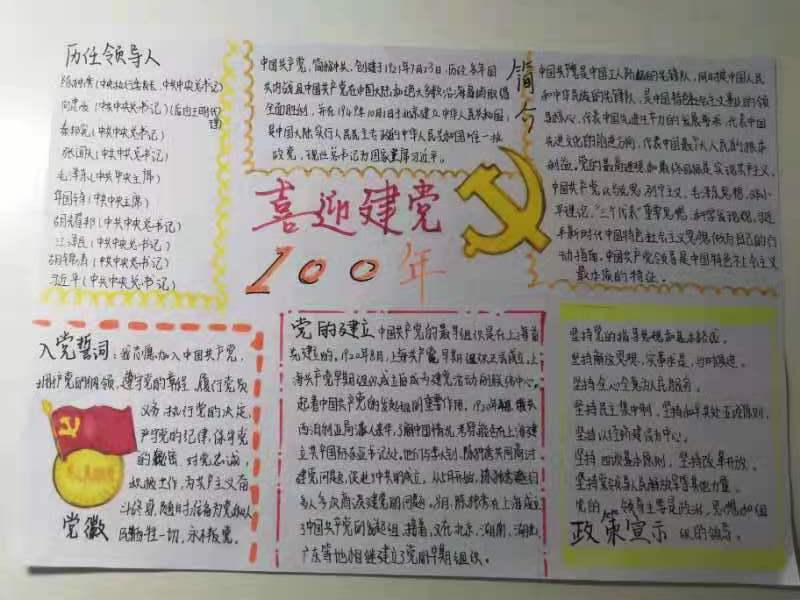 历任领导人
陈独秀(中央执行委员长、中共中央总书记)
向忠发(中共中央总书记)(后由王明代理)
秦邦宪(中共中央总书记)
张闻天(中共中央总书记)
毛泽东(中共中央主席)
华国锋(中共中央主席)
胡耀邦(中共中央总书记)
江泽民(中共中央总书记)
胡锦涛(中共中央总书记)
习近平(中共中央总书记)
中国共产党,简称中共,创建于1921年7月23日,历经多年国
共内战且中国共产党在中国大陆
全面胜利,并在1949年10月1日于北京建立中华人民共和国,
是中国大陆实行人民民主专政的中华人民共和国唯一执
政党,现任总书记为国家主席习近平。
简介
中国共产党是中国工人阶级的先锋队,同时是中国人民
和中华民族的先锋队,是中国特色社会主义事业的领
导核心,代表中国先进生产力的发展要求,代表中国
先进文化的前进方向,代表中国最广大人民的根本
利益。党的最高理想和最终目标是实现共产主义。
中国共产党以马克思列宁主义、毛泽东思想、邓小
平理论、“三个代表”重要思想、科学发展观、习近
平新时代中国特色社会主义思想作为自己的行
动指南。中国共产党领导是中国特色社会主义
最本质的特征。
喜迎建党
100年
入党誓词:我志愿加入中国共产党,
拥护党的纲领,遵守党的章程,履行党员
义务,执行党的决定,
严守党的纪律,保守党
的秘密,对党忠诚,
积极工作,为共产主义奋
斗终身,随时准备为党和人
民牺牲一切,永不叛党。
党徽
党的建立
中国共产党的最早组织是在上海首
先建立的。1920年8月,上海共产党早期组织正式成立。上
海共产党早期组织成立后成为建党活动的联络中心,
起着中国共产党的发起组的重要作用。1920年
西伯利亚局派人来华,了解中国情况,考察能否在上海建
立共产国际东亚书记处。他们与李大钊、陈独秀共同商讨
建党问题,促进了中共的成立。从5月开始,陈独秀邀约
多人多次商谈建党的问题。8月,陈独秀在上海成立
了中国共产党的发起组。接着,又在北京、湖南、湖北、
广东等地相继建立了党的早期组织。
坚持党的指导思想和基本路线。
坚持解放思想,实事求是,与时俱进。
坚持全心全意为人民服务。
坚持民主集中制,坚持和平共处五项原则。
坚持以经济建设为中心。
坚持四项基本原则,坚持改革开放。
坚持党领导人民解放军等其他力量。
党的领导主要是政治、思想和组
织的领导。
政策宣示